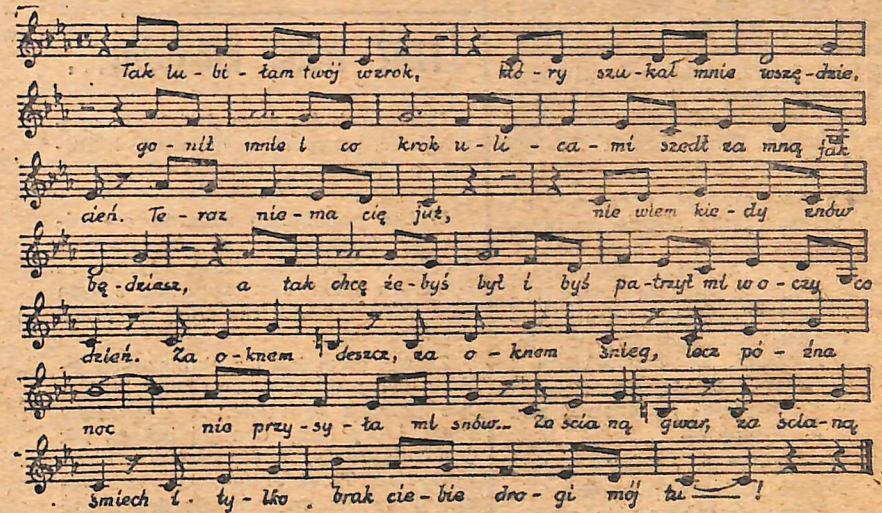 Tak lu-bi-łam twój wzrok, któ-ry szu-kał mnie wszę-dzie,
go-nił mnie i co krok u-li-ca-mi szedł za mną jak
cień. Te-raz nie-ma cię już, nie wiem kie-dy znów
bę-dziesz, a tak chcę że-byś był i byś pa-trzył mi w o-czy co
dzień. Za o-knem deszcz, za o-knem śnieg, lecz pó-źna
noc nie przy-sy-ła mi snów... Za ścia ną gwar, za ścia-ną
śmiech i ty-lko brak cie-bie dro-gi mój tu — !